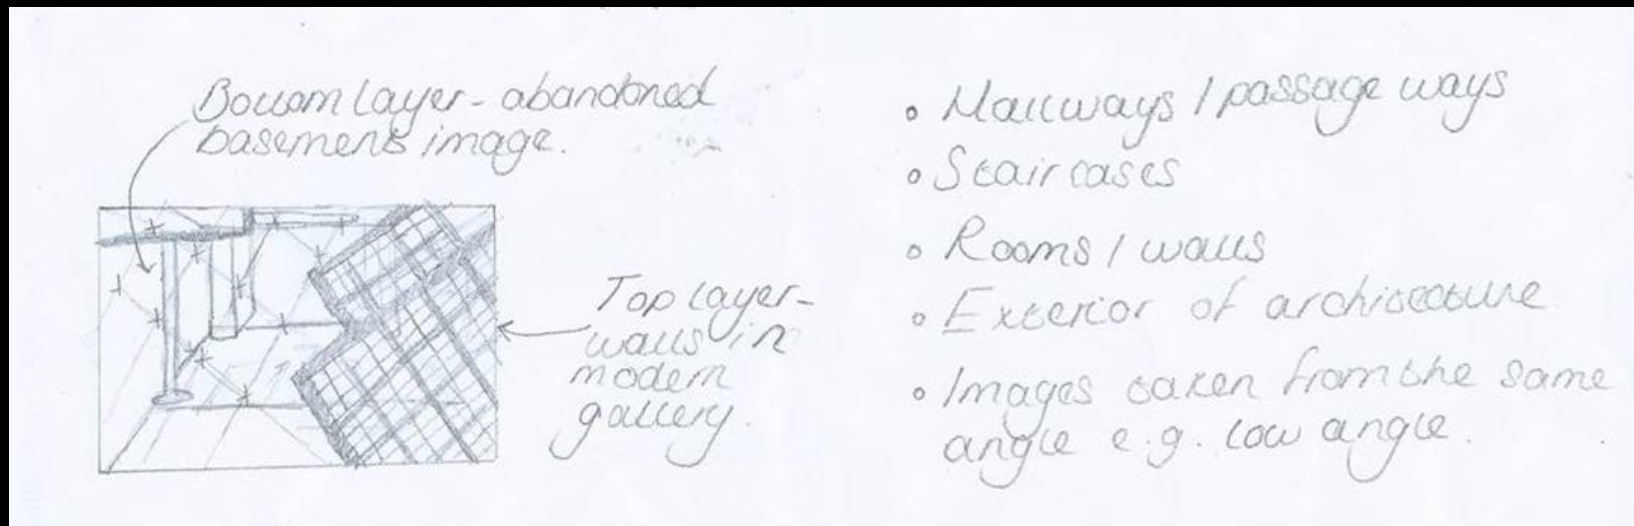 Bottom layer - abandoned
basement image.
Top layer -
walls in
modern
gallery.
• Hallways / passage ways
• Staircases
• Rooms / walls
• Exterior of architecture.
• Images taken from the same
angle e.g. low angle.